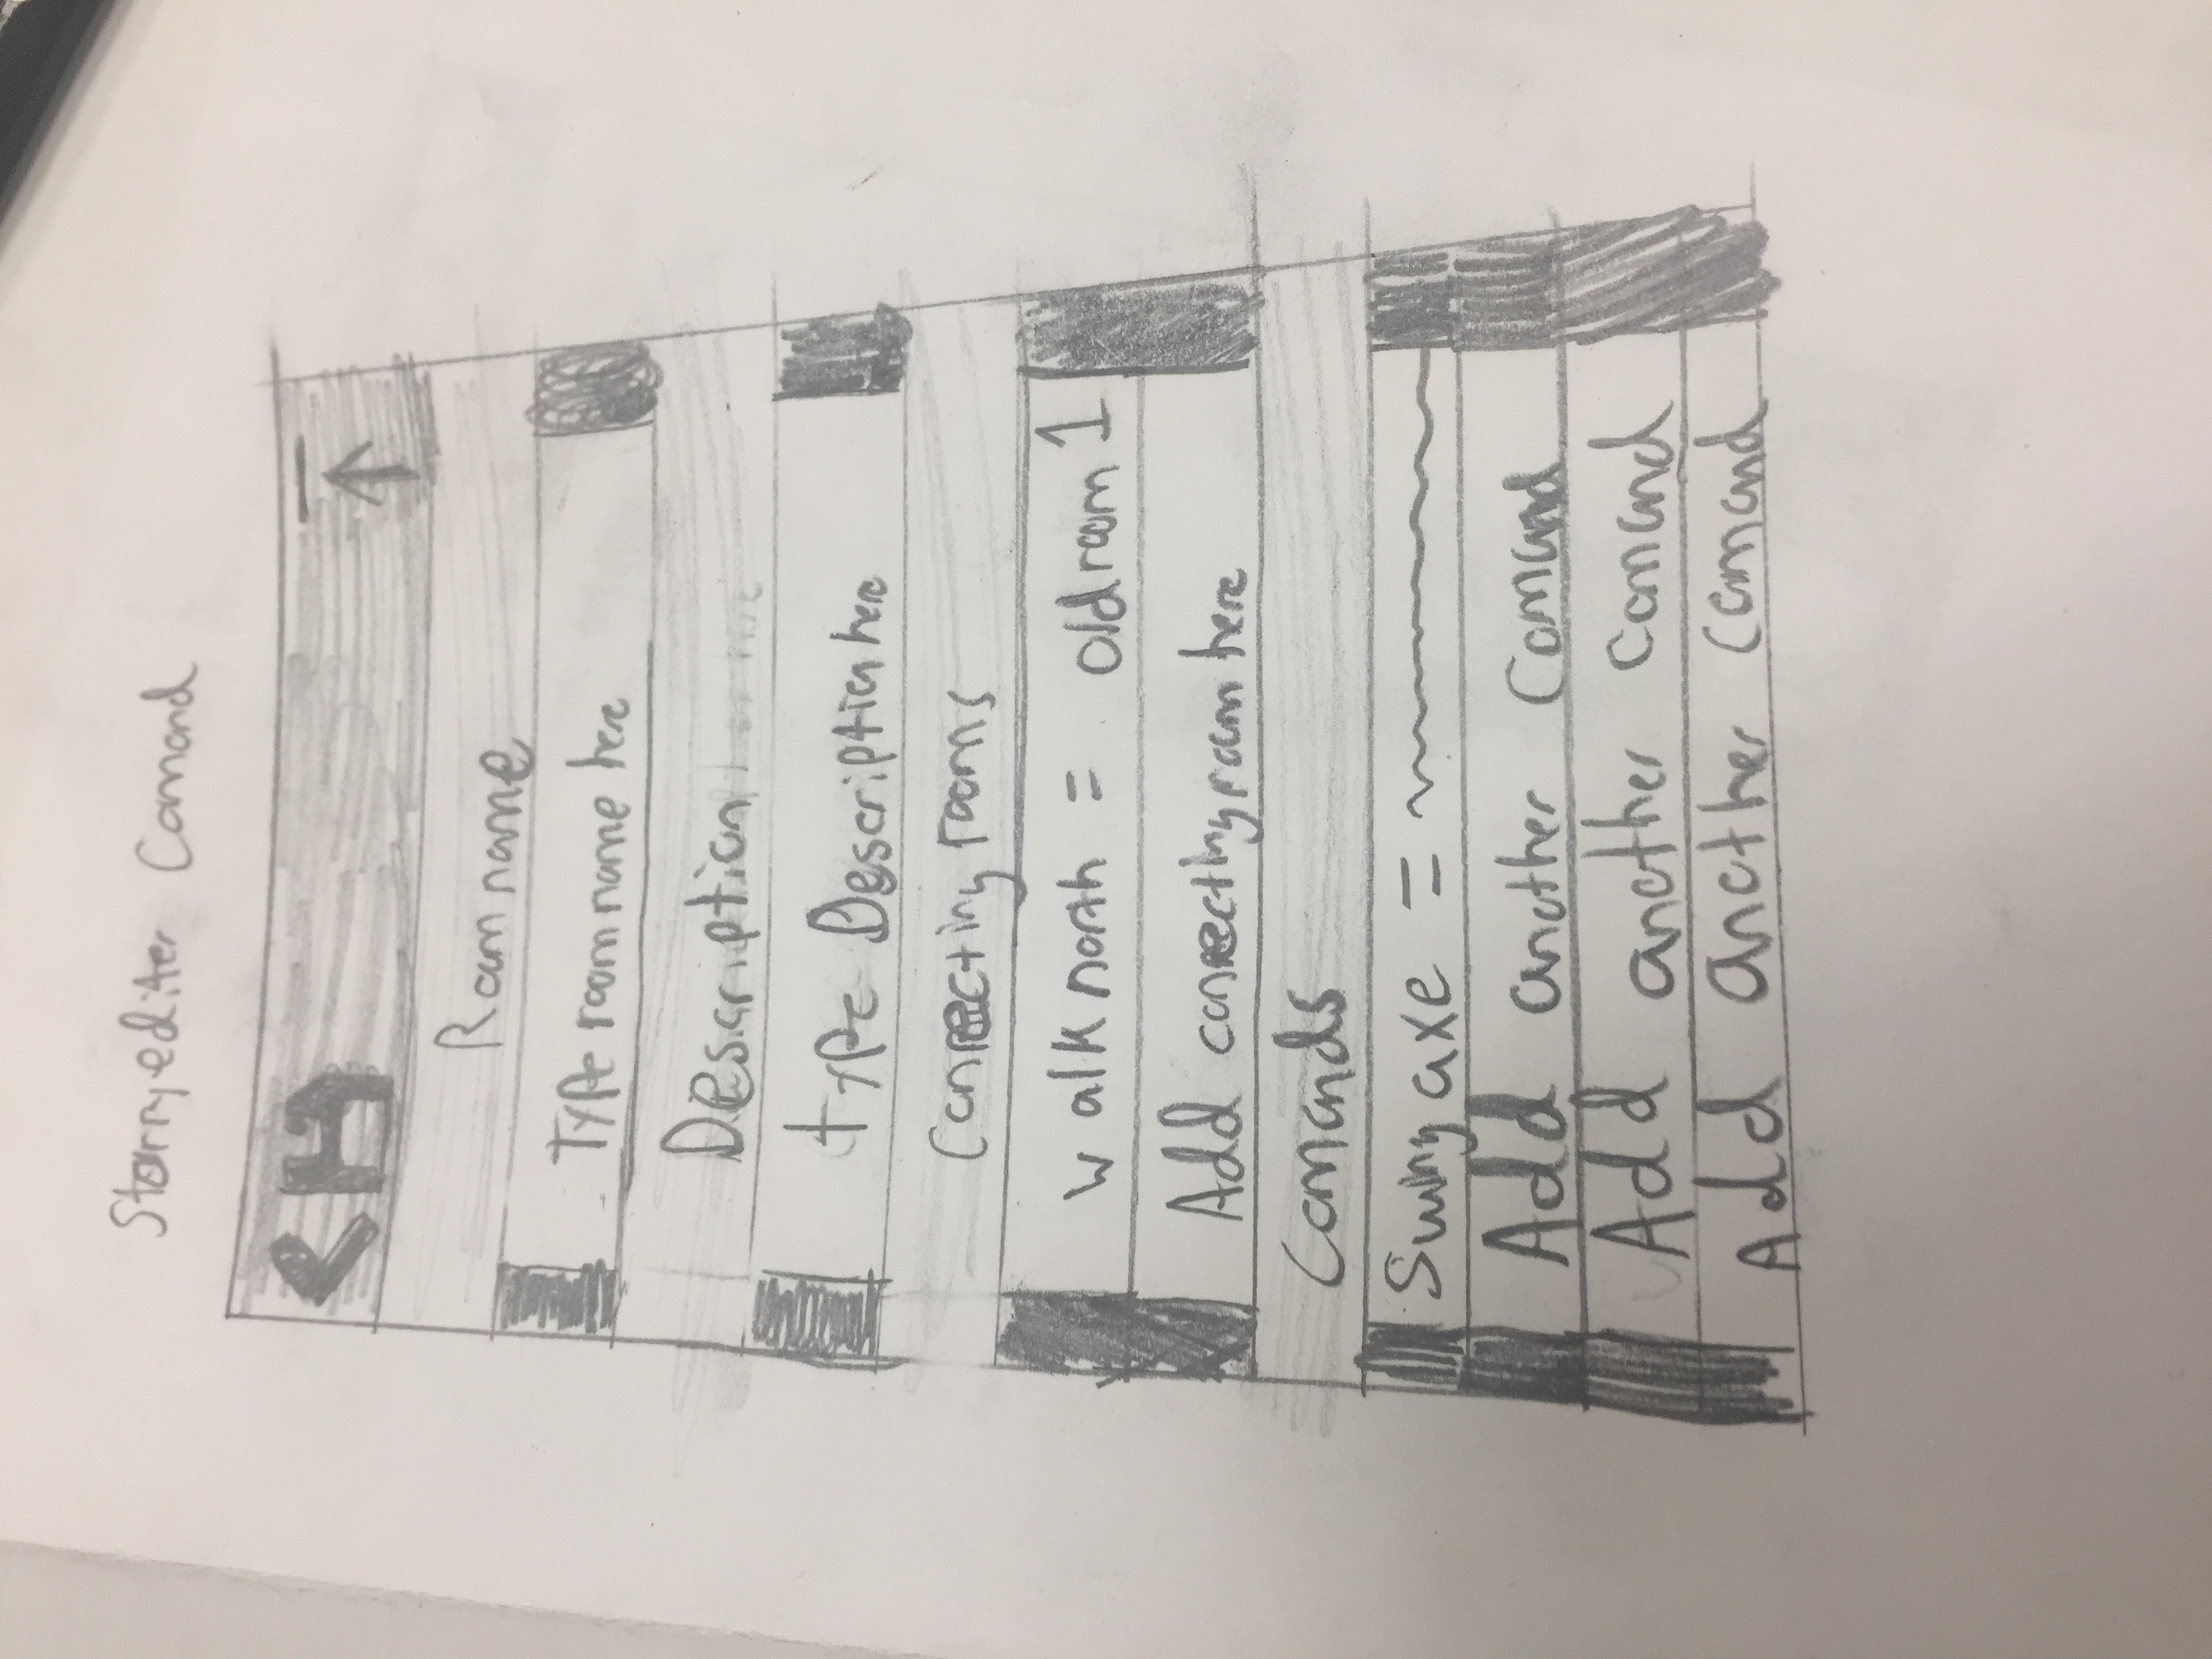 Storryediter Comand
Room name
Type room name here
Description
type Description here
Connecting rooms
walk north = old room 1
Add connecting room here
Comands
Swing axe =
Add another Comand
Add another comand
Add another comand